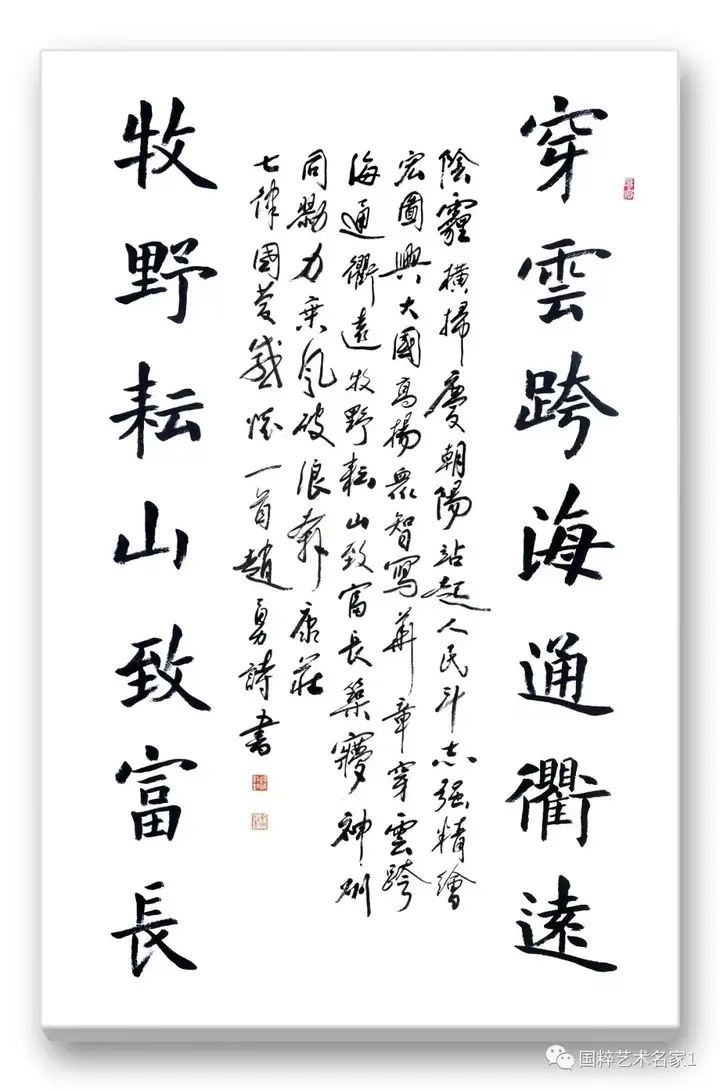 穿雲跨海通衢遠
陰霾橫掃慶朝陽站起人民斗志强精繪
宏圖興大國高揚衆智寫華章穿雲跨
海通衢遠牧野耘山致富長築夢神州
同勠力乘風破浪奔康莊
七律國慶感懷一首趙勇詩書
牧野耘山致富長
国粹艺术名家1